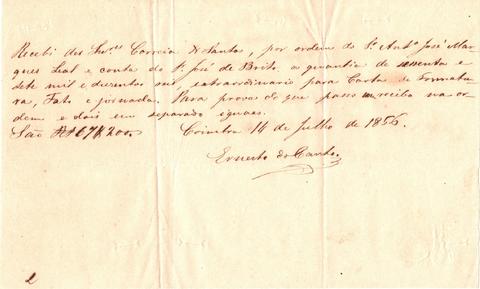 Recebi dos Snr.es Correia & Santos, por ordem do Sr. Antº José Mar-
ques Leal e conta do Sr. José de Brito, a quantia de sessenta e
sete mil e duzentos reis, extraordinario para Carta de Formatu-
ra, Fato e jornada. Para prova do que passo este recibo na or-
dem e dois em separado eguaes.
São Rs 67$200
Coimbra 14 de Julho de 1856.
Ernesto do Canto.
2